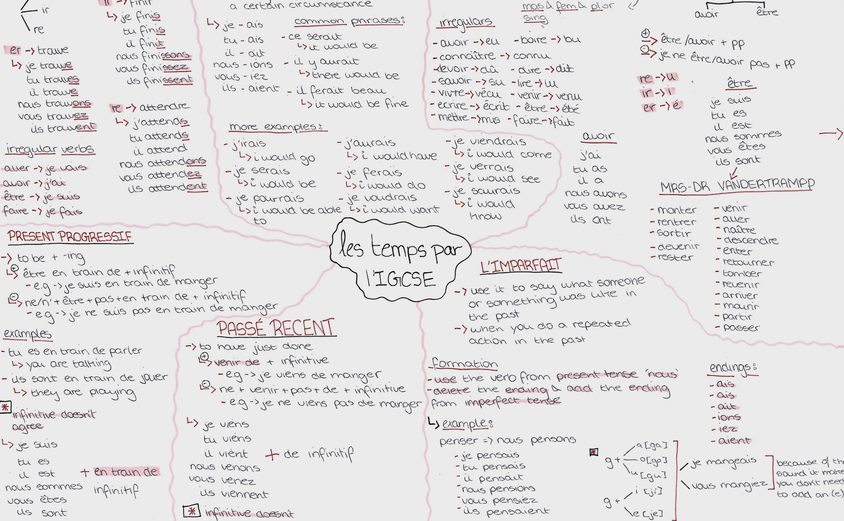 ir
re
er → trouve
↳ je trouve
tu trouves
il trouve
nous trouvons
vous trouvez
ils trouvent
irregular verbs
aller → je vais
avoir → j'ai
être → je suis
faire → je fais
ir → finir
↳ je finis
tu finis
il finit
nous finissons
vous finissez
ils finissent
re → attendre
↳ j'attends
tu attends
il attend
nous attendons
vous attendez
ils attendent
a certain circumstance
↳ je - ais
tu - ais
il - ait
nous - ions
vous - iez
ils - aient
common phrases:
- ce serait
↳ it would be
- il y aurait
↳ there would be
- il ferait beau
↳ it would be fine
more examples:
- j'irais
↳ i would go
- je serais
↳ i would be
- je pourrais
↳ i would be able to
- j'aurais
↳ i would have
- je ferais
↳ i would do
- je voudrais
↳ i would want
- je viendrais
↳ i would come
- je verrais
↳ i would see
- je saurais
↳ i would know
irregulars
mas & fem & pl or sing
- avoir → eu - boire → bu
- connaître → connu
- devoir → dû - dire → dit
- savoir → su - lire → lu
- vivre → vécu - venir → venu
- ecrire → écrit - être → été
- mettre → mis - faire → fait
avoir
être
⊕ être/avoir + pp
⊖ je ne être/avoir pas + pp
re → u
ir → i
er → é
être
je suis
tu es
il est
nous sommes
vous êtes
ils sont
avoir
j'ai
tu as
il a
nous avons
vous avez
ils ont
MRS-DR VANDERTRAMPP
- monter
- rentrer
- sortir
- devenir
- rester
- venir
- aller
- naître
- descendre
- enter
- retourner
- tomber
- revenir
- arriver
- mourir
- partir
- passer
les temps par
l'IGCSE
PRESENT PROGRESSIF
→ to be + -ing
⊕ être en train de + infinitif
- e.g → je suis en train de manger
⊖ ne/n' + être + pas + en train de + infinitif
- e.g → je ne suis pas en train de manger
examples
- tu es en train de parler
↳ you are talking
- ils sont en train de jouer
↳ they are playing
* infinitive doesn't
agree
↳ je suis
tu es
il est
nous sommes
vous êtes
ils sont
+ en train de
infinitif
PASSÉ RECENT
→ to have just done
⊕ venir de + infinitive
- e.g → je viens de manger
⊖ ne + venir + pas + de + infinitive
- e.g → je ne viens pas de manger
↳ je viens
tu viens
il vient + de infinitif
nous venons
vous venez
ils viennent
* infinitive doesn't
L'IMPARFAIT
→ use it to say what someone
or something was like in
the past
→ when you do a repeated
action in the past
formation
- use the verb from present tense 'nous'
- delete the ending & add the ending
from imperfect tense
↳ example:
penser => nous pensons
- je pensais
- tu pensais
- il pensait
- nous pensions
- vous pensiez
- ils pensaient
endings:
- ais
- ais
- ait
- ions
- iez
- aient
*
g +
a [ga]
o [go]
u [gu]
g +
i [ji]
e [je]
je mangeais
vous mangiez
because of the
sound it makes
you don't need
to add an (e)